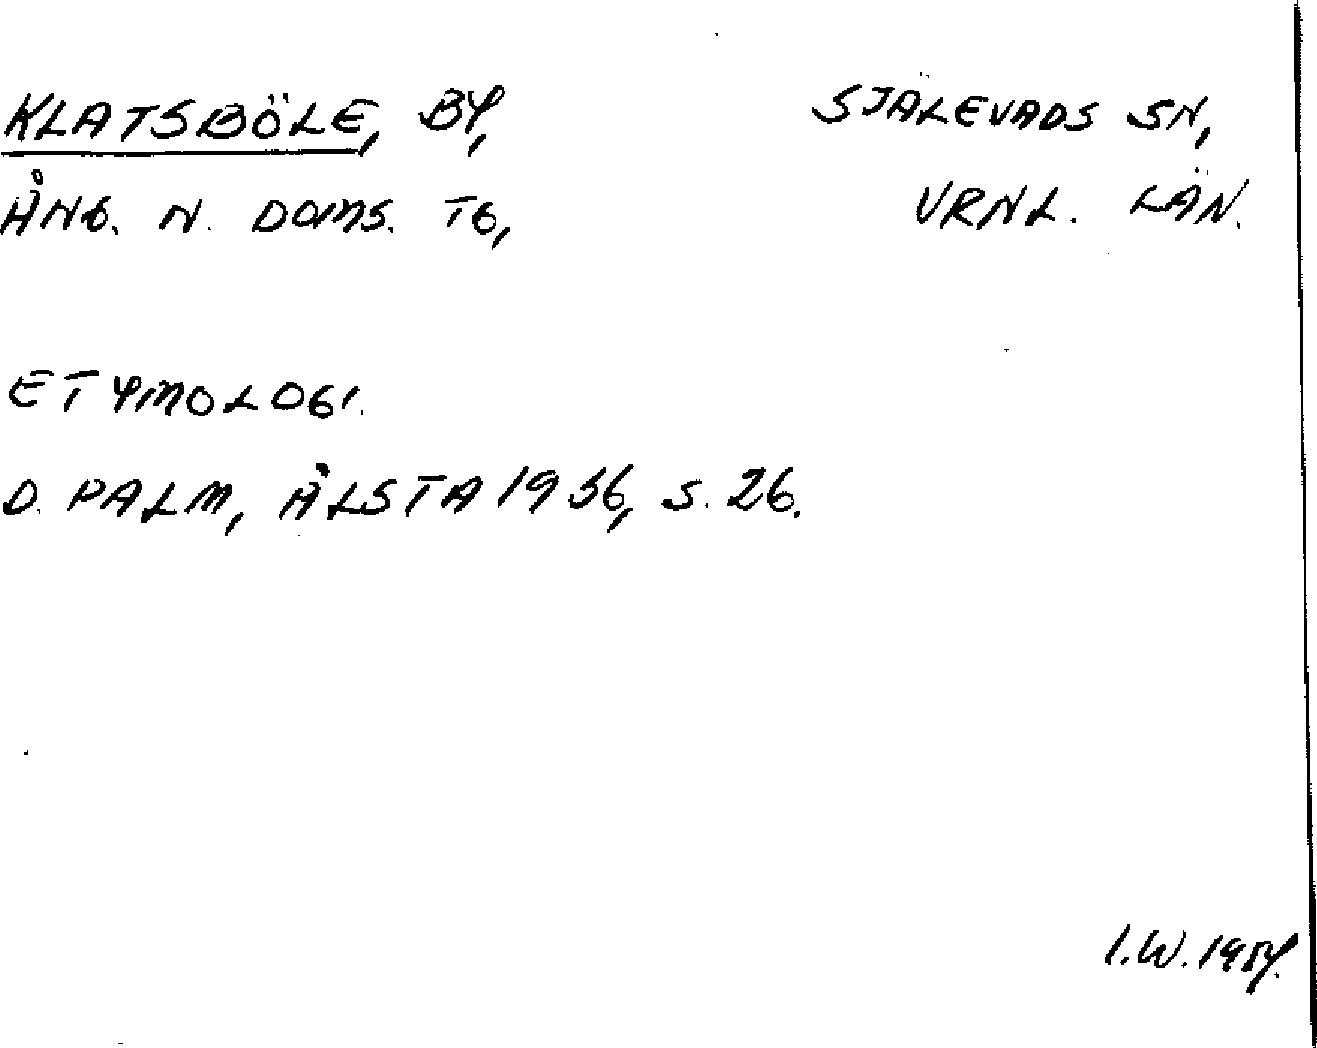 KLATSBÖLE, BY, SJÄLEVADS SN,
ÅNG. N. DOMS. TG, VRNL. LÄN.
ETYMOLOGI.
D. PALM, ÅLSTA 1936, S. 26.
I.W. 1954.